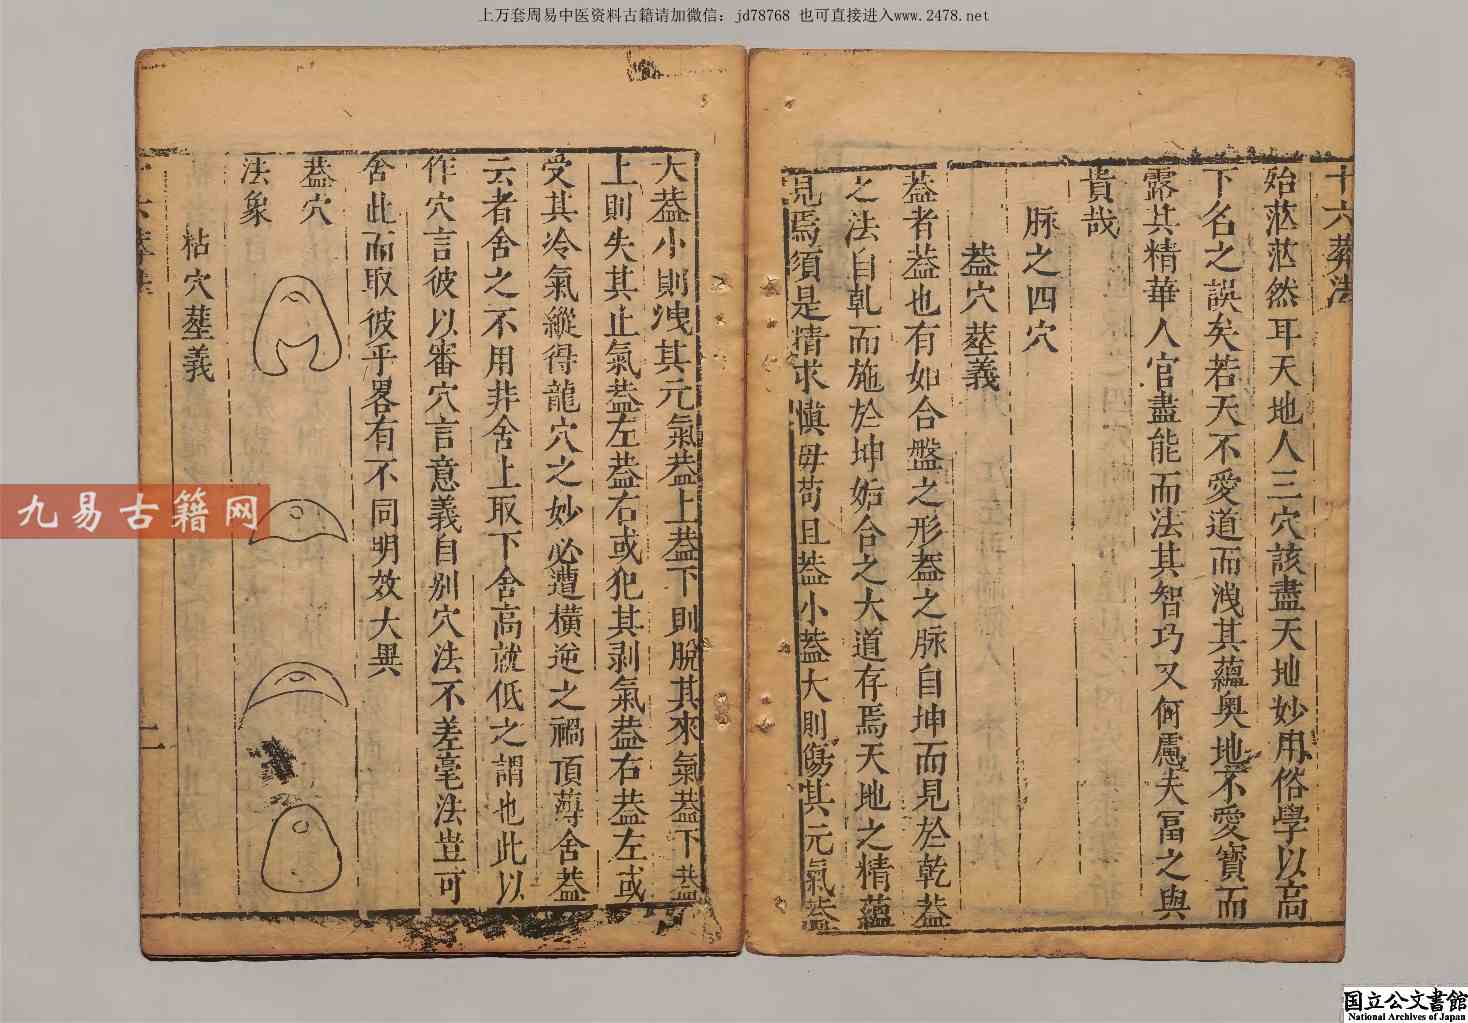 上万套周易中医资料古籍请加微信：jd78768 也可直接进入www.2478.net
十六葬法
殆茫茫然耳天地人三穴該盡天地妙用俗學以高
下名之誤矣若天不愛道而洩其蘊奥地不愛寶而
露其精華人官盡能而法其智巧又何慮夫冨之與
貴哉
脉之四穴
葢穴葬義
葢者葢也有如合盤之形葢之脉自坤而見於乾葢
之法自乹而施於坤姤合之大道存焉天地之精蘊
見焉須是精求慎毋苟且葢小葢大則傷其元氣葢
大葢小則洩其元氣葢上葢下則脫其來氣葢下葢
上則失其止氣葢左葢右或犯其剥氣葢右葢左或
受其冷氣縱得龍穴之妙必遭橫逆之禍頂薄舍葢
云者舍之不用非舍上取下舍高就低之謂也此以
作穴言彼以審穴言意義自别穴法不差毫法豈可
舍此而取彼乎畧有不同明效大異
葢穴
法象
粘穴葬義
九易古籍网
国立公文書館
National Archives of Japan